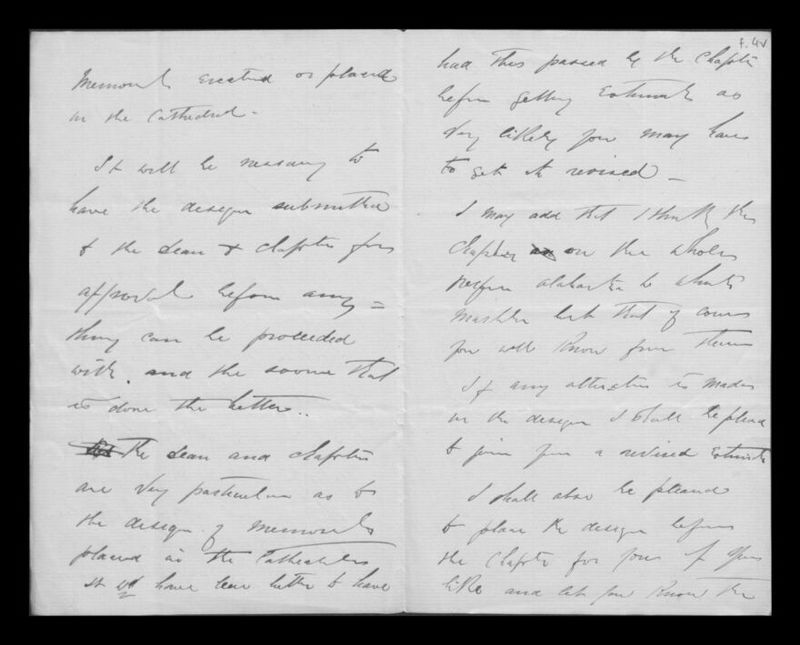 Memorials erected or placed
in the Cathedral -
It will be necessary to
have the design submitted
to the Dean & Chapter for
approval before any =
thing can be proceeded
with. and the sooner that
is done the better..
The Dean and Chapter
are very particular as to
the design of memorials
placed in the Cathedral
it wd have been better to have
f.4v
had this passed by the Chapter
before getting Estimate as
very likely you may have
to get it revised -
I may add that I think the
Chapter on the whole
prefer alabaster to white
marble but that of course
you will know from them
If any alteration is made
in the design I shall be pleased
to give you a revised Estimate
I shall also be pleased
to place the design before
the Chapter for you if you
like and let you know the